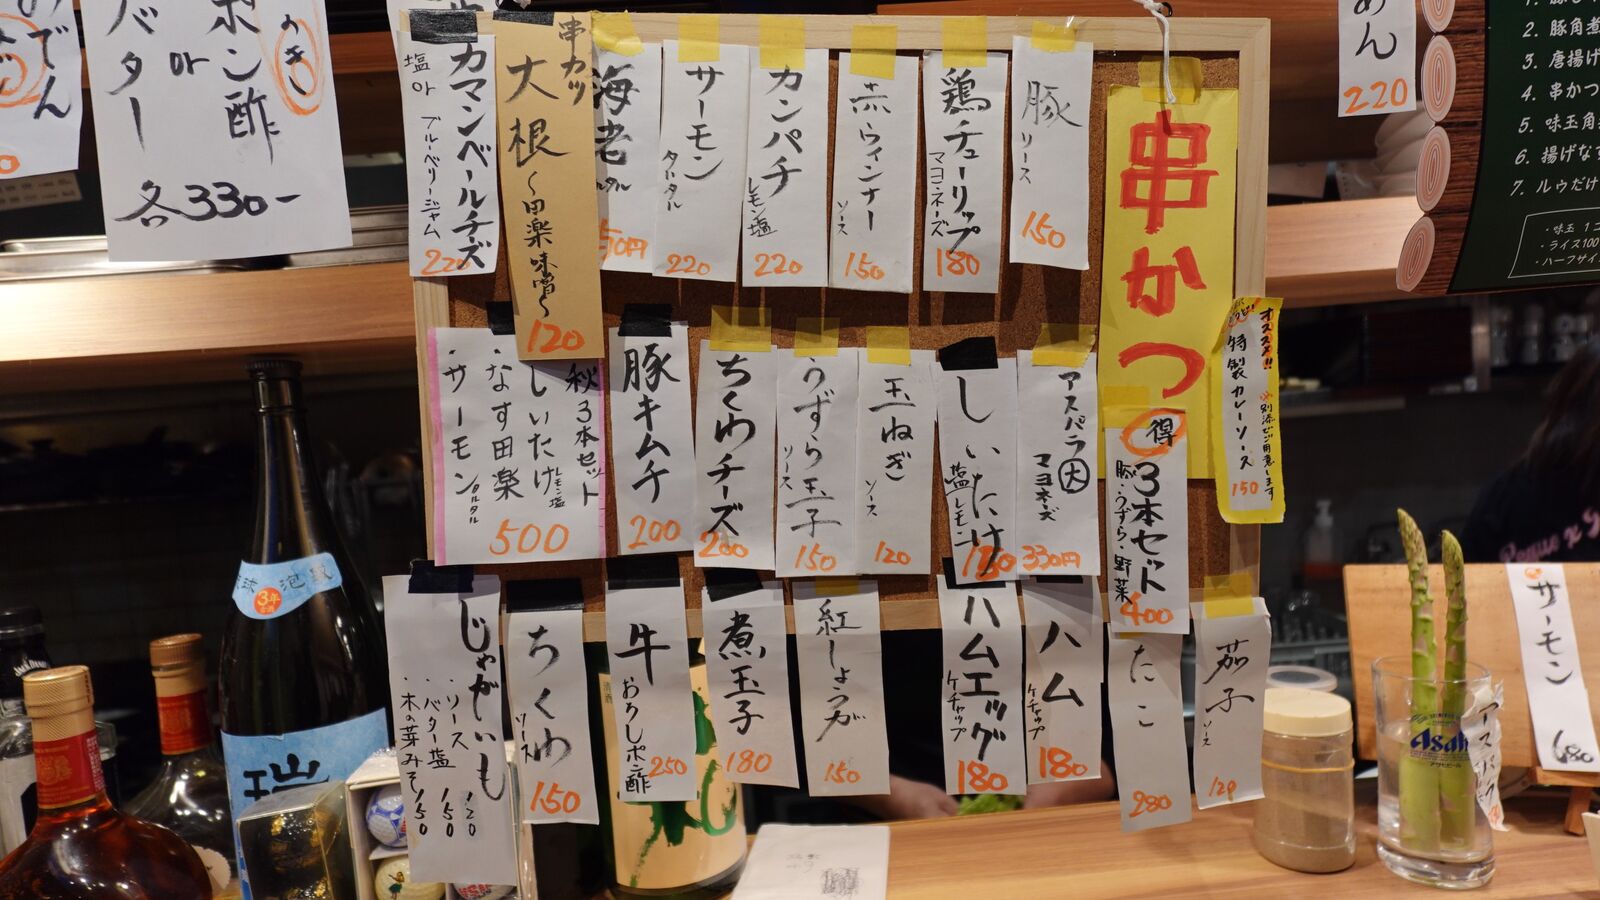 ポン酢
or
バター
各330-
220
2. 豚角煮
3. 唐揚げ
4. 串かつ
5. 味玉角
6. 揚げな
7. ルウだけ
・味玉 1コ
・ライス100
・ハーフサイ
串かつ
オススメ!!
特製カレーソース
150
豚
ソース
150
鶏チューリップ
マヨネーズ
180
赤ウィンナー
ソース
150
カンパチ
レモン塩
220
サーモン
タルタル
220
海老
50円
串カツ
大根
〜田楽味噌〜
120
カマンベールチーズ
塩 or ブルーベリージャム
220
得
3本セット
豚・うずら・野菜
400
アスパラ大
マヨネーズ
330円
しいたけ
塩レモン
うずら玉子
ソース
150
玉ねぎ
ソース
120
ちくわチーズ
200
豚キムチ
200
秋3本セット
・しいたけ レモン塩
・なす田楽
・サーモン タルタル
500
茄子
ソース
120
たこ
280
ハム
ケチャップ
180
ハムエッグ
ケチャップ
180
紅しょうが
150
煮玉子
180
牛
おろしポン酢
250
ちくわ
ソース
150
じゃがいも
・ソース 120
・バター塩 150
・木の芽みそ 150
サーモン
680
Asahi
アサヒビール
3年
泡盛